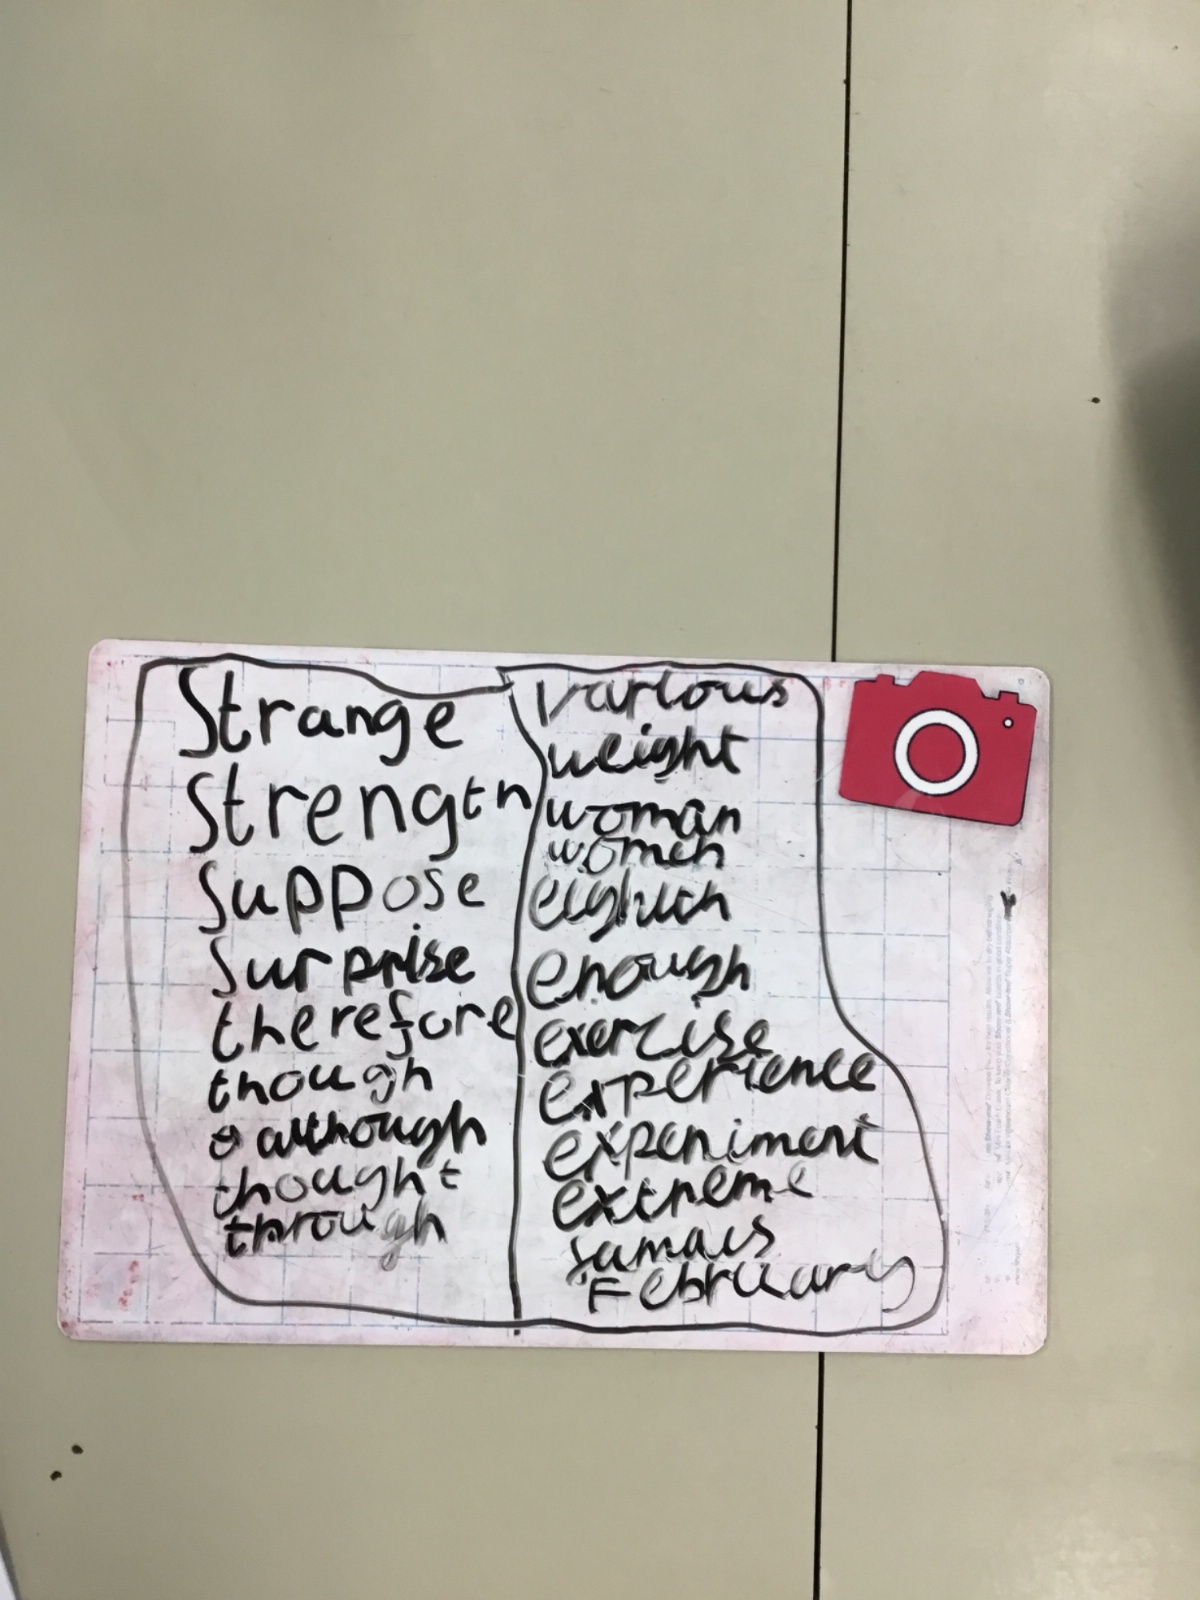 Strange
Strength
Suppose
Surprise
therefore
though
although
thought
through
various
weight
woman
women
enough
exercise
experience
experiment
extreme
February